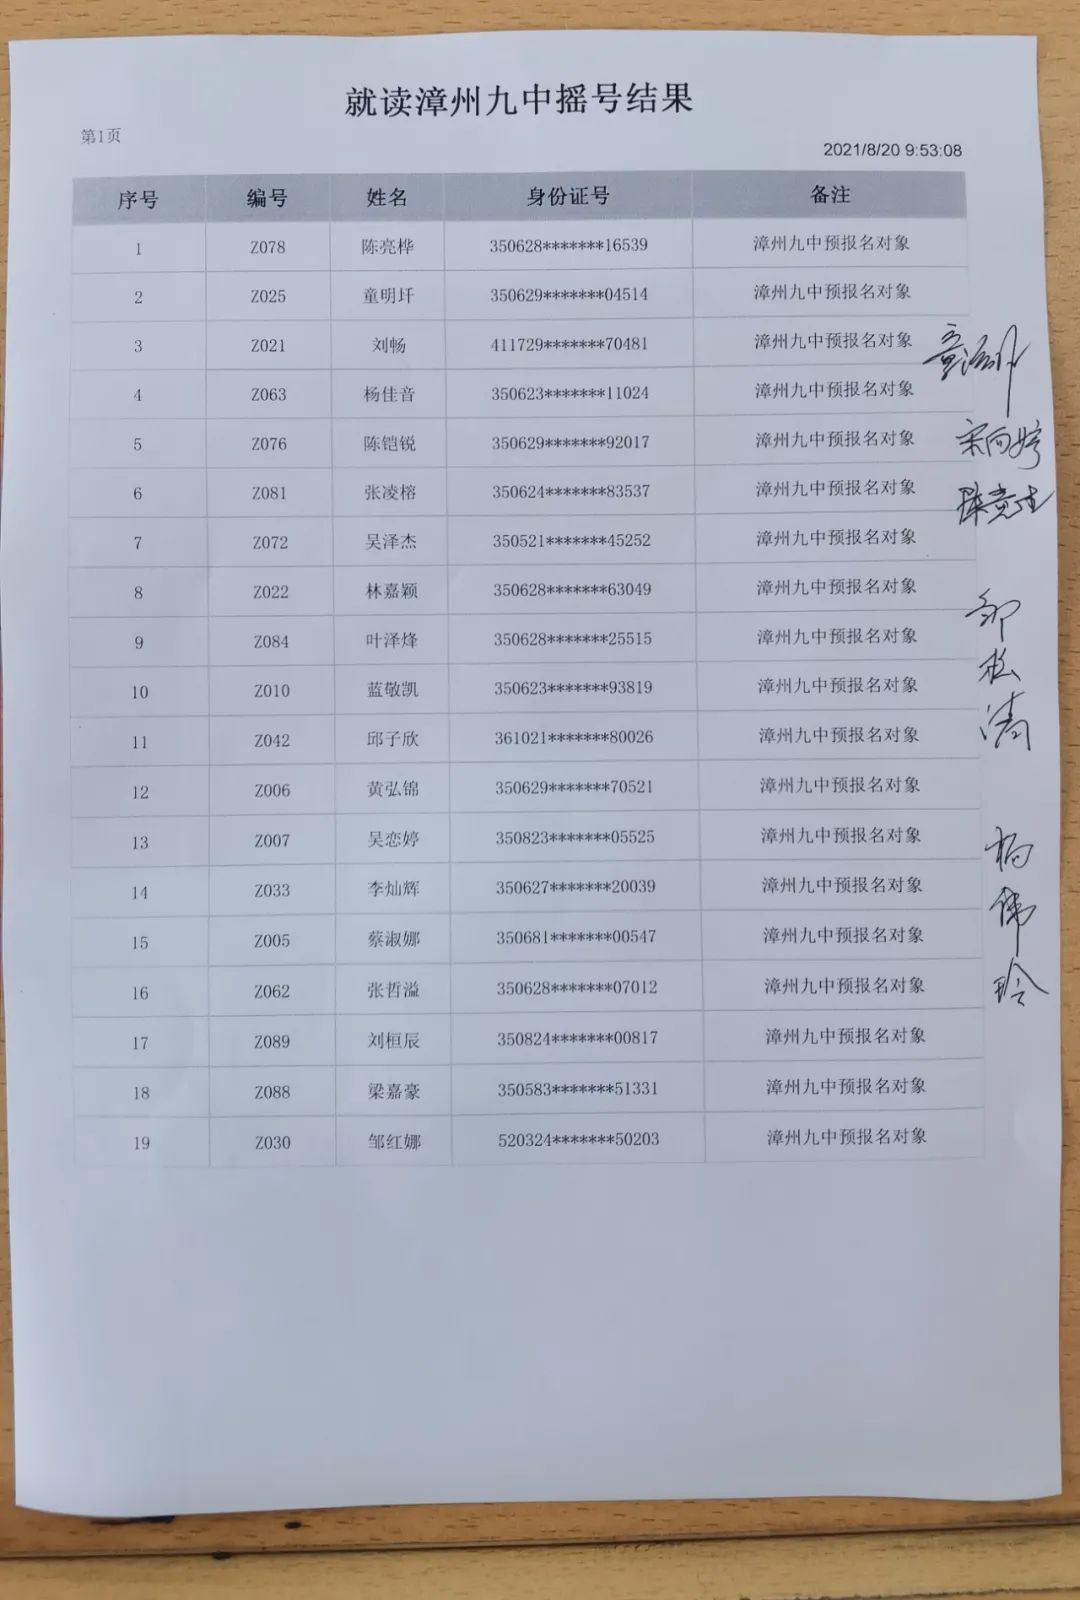 就读漳州九中摇号结果
第1页
2021/8/20 9:53:08
序号 编号 姓名 身份证号 备注
1 Z078 陈亮桦 350628*******16539 漳州九中预报名对象
2 Z025 童明圩 350629*******04514 漳州九中预报名对象
3 Z021 刘畅 411729*******70481 漳州九中预报名对象
4 Z063 杨佳音 350623*******11024 漳州九中预报名对象
5 Z076 陈铠锐 350629*******92017 漳州九中预报名对象
6 Z081 张凌榕 350624*******83537 漳州九中预报名对象
7 Z072 吴泽杰 350521*******45252 漳州九中预报名对象
8 Z022 林嘉颖 350628*******63049 漳州九中预报名对象
9 Z084 叶泽烽 350628*******25515 漳州九中预报名对象
10 Z010 蓝敬凯 350623*******93819 漳州九中预报名对象
11 Z042 邱子欣 361021*******80026 漳州九中预报名对象
12 Z006 黄弘锦 350629*******70521 漳州九中预报名对象
13 Z007 吴恋婷 350823*******05525 漳州九中预报名对象
14 Z033 李灿辉 350627*******20039 漳州九中预报名对象
15 Z005 蔡淑娜 350681*******00547 漳州九中预报名对象
16 Z062 张哲溢 350628*******07012 漳州九中预报名对象
17 Z089 刘桓辰 350824*******00817 漳州九中预报名对象
18 Z088 梁嘉豪 350583*******51331 漳州九中预报名对象
19 Z030 邹红娜 520324*******50203 漳州九中预报名对象
宋向婷
杨伟玲